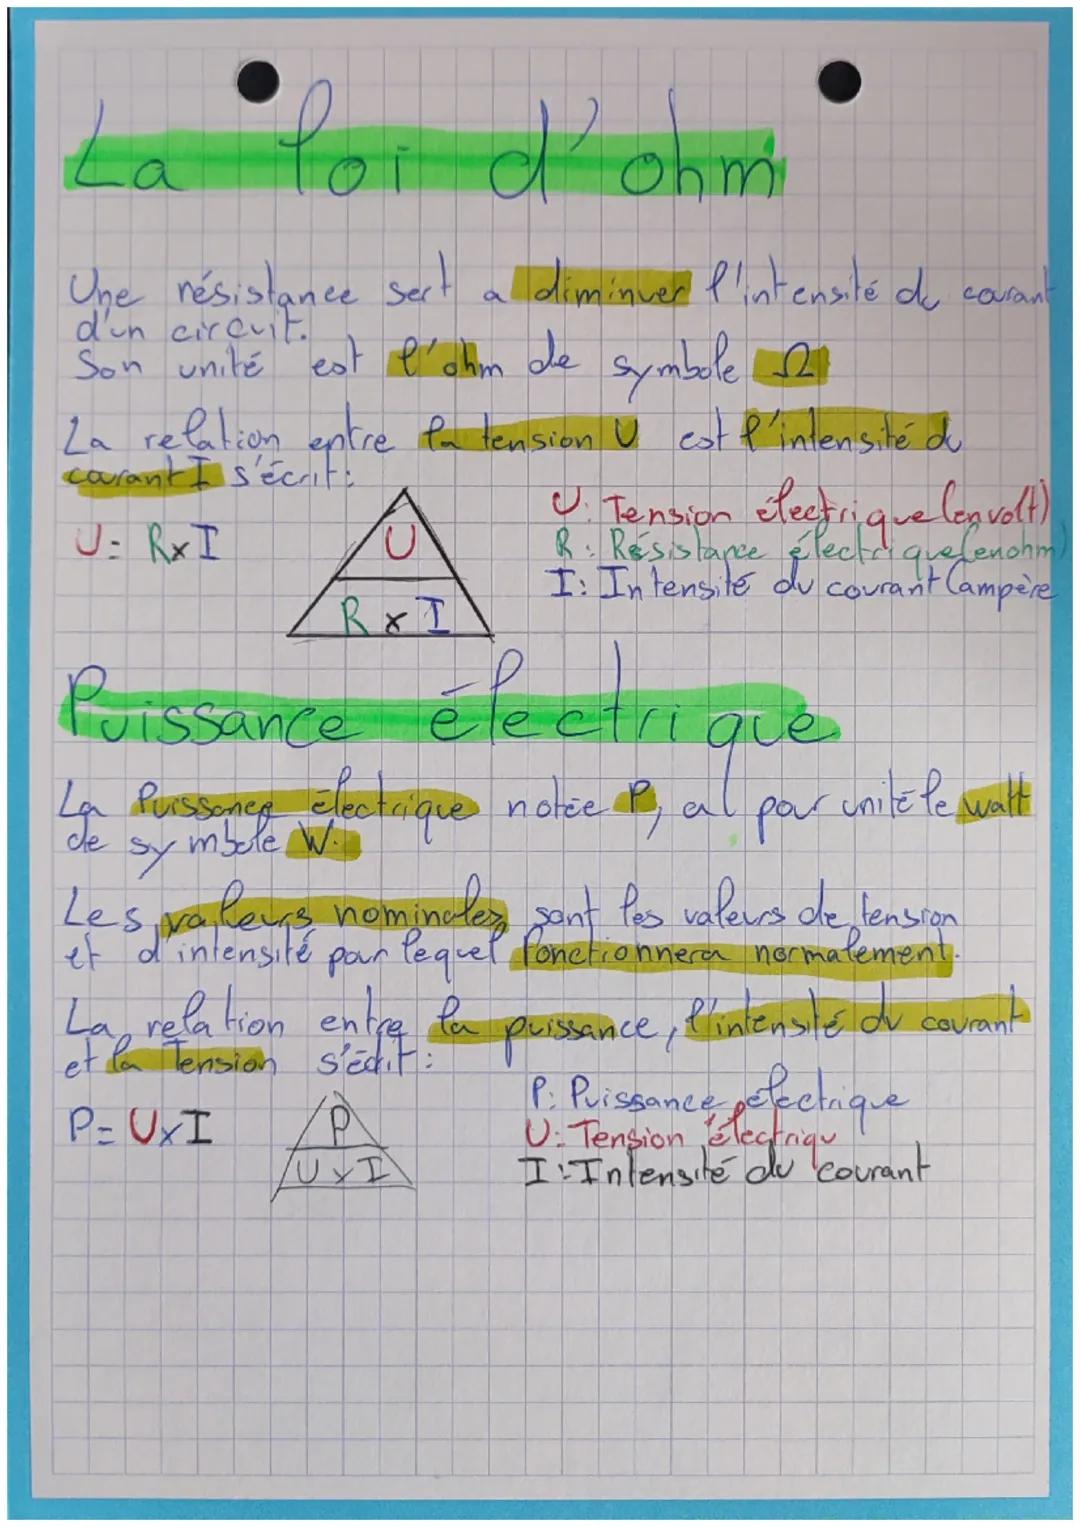 La loi d'ohm
Une résistance sert a diminuer l'intensité du courant
d'un circuit.
Son unité est l'ohm de symbole Ω
La relation entre la tension U est l'intensité du
courant I s'écrit:
U = R x I
U
R x I
U: Tension électrique (en volt)
R: Résistance électrique (en ohm)
I: Intensité du courant (ampère
Puissance électrique
La Puissance électrique notée P, a pour unité le watt
de symbole W.
Les valeurs nominales sont les valeurs de tension
et d'intensité par lequel fonctionnera normalement.
La relation entre la puissance, l'intensité du courant
et la Tension s'écrit:
P = U x I
P
U x I
P: Puissance électrique
U: Tension électriqu
I: Intensité du courant